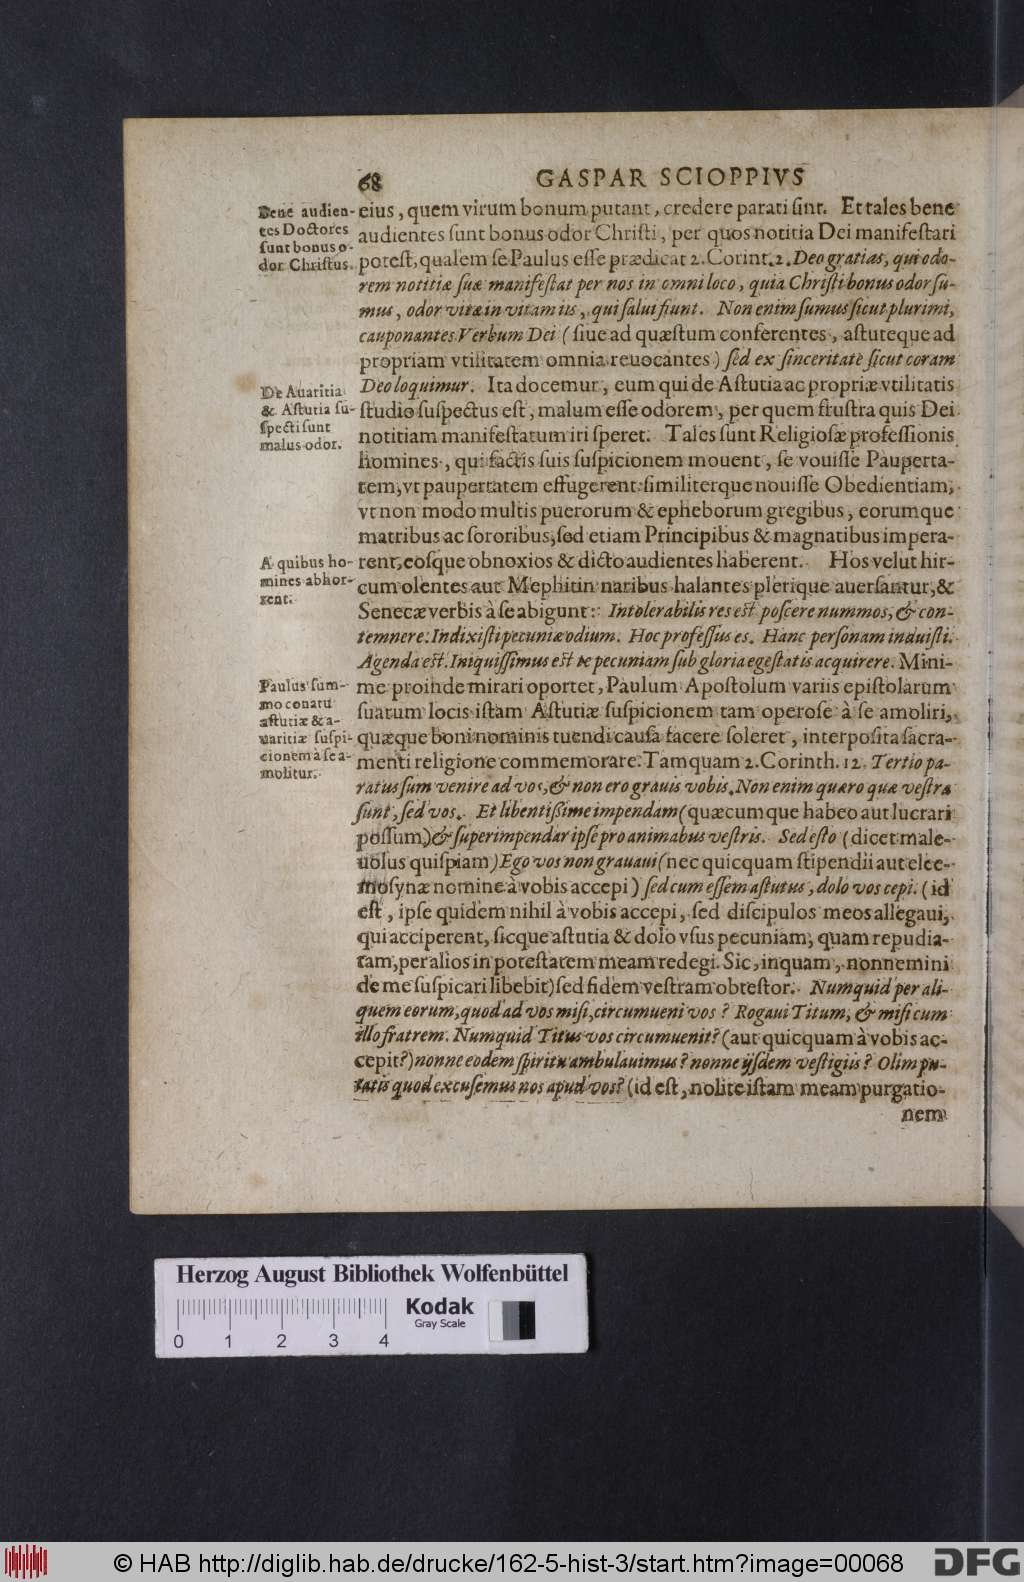 68 GASPAR SCIOPPIVS
Bene audien-
tes Doctores
sunt bonus o-
dor Christus.
eius, quem virum bonum putant, credere parati sint. Et tales bene
audientes sunt bonus odor Christi, per quos notitia Dei manifestari
potest, qualem se Paulus esse prædicat 2. Corint. 2. Deo gratias, qui odo-
rem notitiæ suæ manifestat per nos in omni loco, quia Christi bonus odor su-
mus, odor vitæ in vitam iis, qui salui fiunt. Non enim sumus sicut plurimi,
cauponantes Verbum Dei (siue ad quæstum conferentes, astuteque ad
propriam vtilitatem omnia reuocantes) sed ex sinceritate sicut coram
De Auaritia
& Astutia su-
specti sunt
malus odor.
Deo loquimur. Ita docemur, eum qui de Astutia ac propriæ vtilitatis
studio suspectus est, malum esse odorem, per quem frustra quis Dei
notitiam manifestatum iri speret. Tales sunt Religiosæ professionis
homines, qui factis suis suspicionem mouent, se vouisse Pauperta-
tem, vt paupertatem effugerent: similiterque nouisse Obedientiam,
vt non modo multis puerorum & epheborum gregibus, eorumque
matribus ac sororibus, sed etiam Principibus & magnatibus impera-
A quibus ho-
mines abhor-
rent.
rent, eosque obnoxios & dicto audientes haberent. Hos velut hir-
cum olentes aut Mephitin naribus halantes plerique auersantur, &
Senecæ verbis à se abigunt: Intolerabilis res est poscere nummos, & con-
temnere: Indixisti pecuniæ odium. Hoc professus es. Hanc personam induisti.
Agenda est. Iniquissimus est te pecuniam sub gloria egestatis acquirere. Mini-
Paulus sum-
mo conatu
astutiæ & a-
varitiæ suspi-
cionem à se a-
molitur.
me proinde mirari oportet, Paulum Apostolum variis epistolarum
suarum locis istam Astutiæ suspicionem tam operose à se amoliri,
quæque boni nominis tuendi causa facere soleret, interposita sacra-
menti religione commemorare. Tamquam 2. Corinth. 12. Tertio pa-
ratus sum venire ad vos, & non ero grauis vobis. Non enim quæro quæ vestra
sunt, sed vos. Et libentißime impendam (quæcumque habeo aut lucrari
possum) & superimpendar ipse pro animabus vestris. Sed esto (dicet male-
uolus quispiam) Ego vos non grauaui (nec quicquam stipendii aut elee-
mosynæ nomine à vobis accepi) sed cum essem astutus, dolo vos cepi. (id
est, ipse quidem nihil à vobis accepi, sed discipulos meos allegaui,
qui acciperent, sicque astutia & dolo vsus pecuniam, quam repudia-
ram, per alios in potestatem meam redegi. Sic, inquam, nonnemini
de me suspicari libebit) sed fidem vestram obtestor. Numquid per ali-
quem eorum, quod ad vos misi, circumueni vos? Rogaui Titum, & misi cum
illo fratrem. Numquid Titus vos circumuenit? (aut quicquam à vobis ac-
cepit?) nonne eodem spiritu ambulauimus? nonne ijsdem vestigiis? Olim pu-
tatis quod excusemus nos apud vos? (id est, nolite istam meam purgatio-
nem
Herzog August Bibliothek Wolfenbüttel
0 1 2 3 4
Kodak
Gray Scale
© HAB http://diglib.hab.de/drucke/162-5-hist-3/start.htm?image=00068
DFG